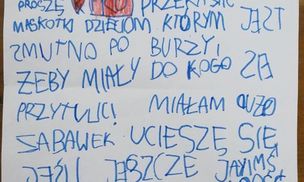 PROSZĘ PRZEKAZAĆ
MASKOTKI DZIECIOM KTÓRYM JEST
SMUTNO PO BURZY,
ŻEBY MIAŁY DO KOGO SIĘ
PRZYTULIĆ! MIAŁAM DUŻO
ZABAWEK UCIESZĘ SIĘ
JEŚLI JESZCZE JAKIMŚ